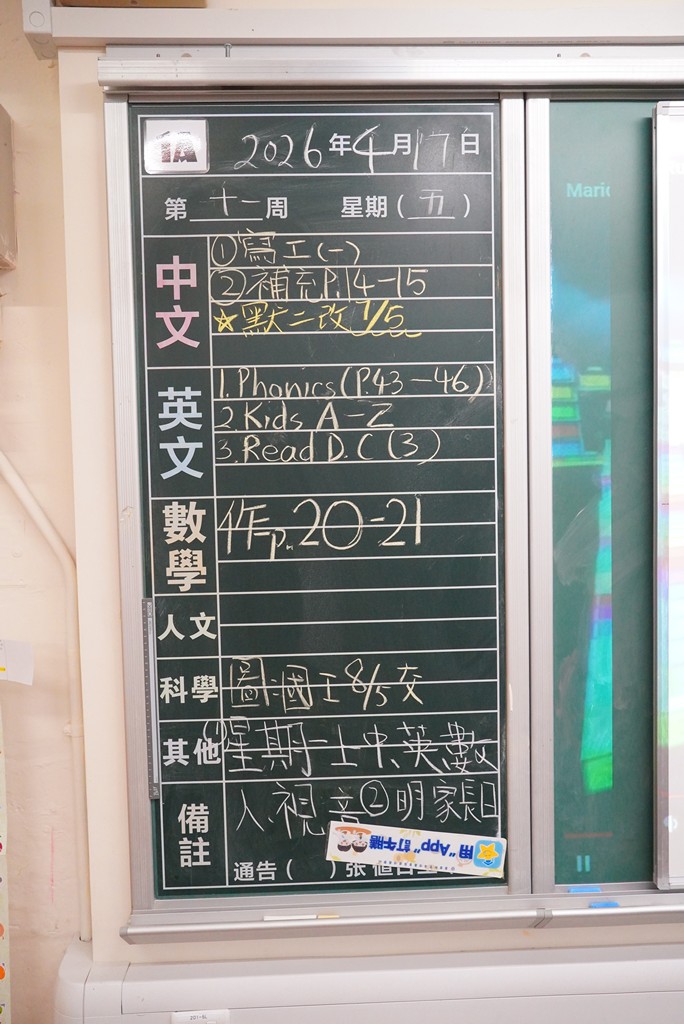 1A
2026年4月17日
第十一周 星期(五)
中文
①寫工(一)
②補充P.14-15
☆默二改 7/5
英文
1. Phonics (P.43-46)
2. Kids A-Z
3. Read D.C (3)
數學
作p.20-21
人文
科學
圖國工 8/5交
其他
①星期一上中、英、數、
備註
人、視、音②明家長日
通告( )張 值日生
用“App”訂午膳
Mario